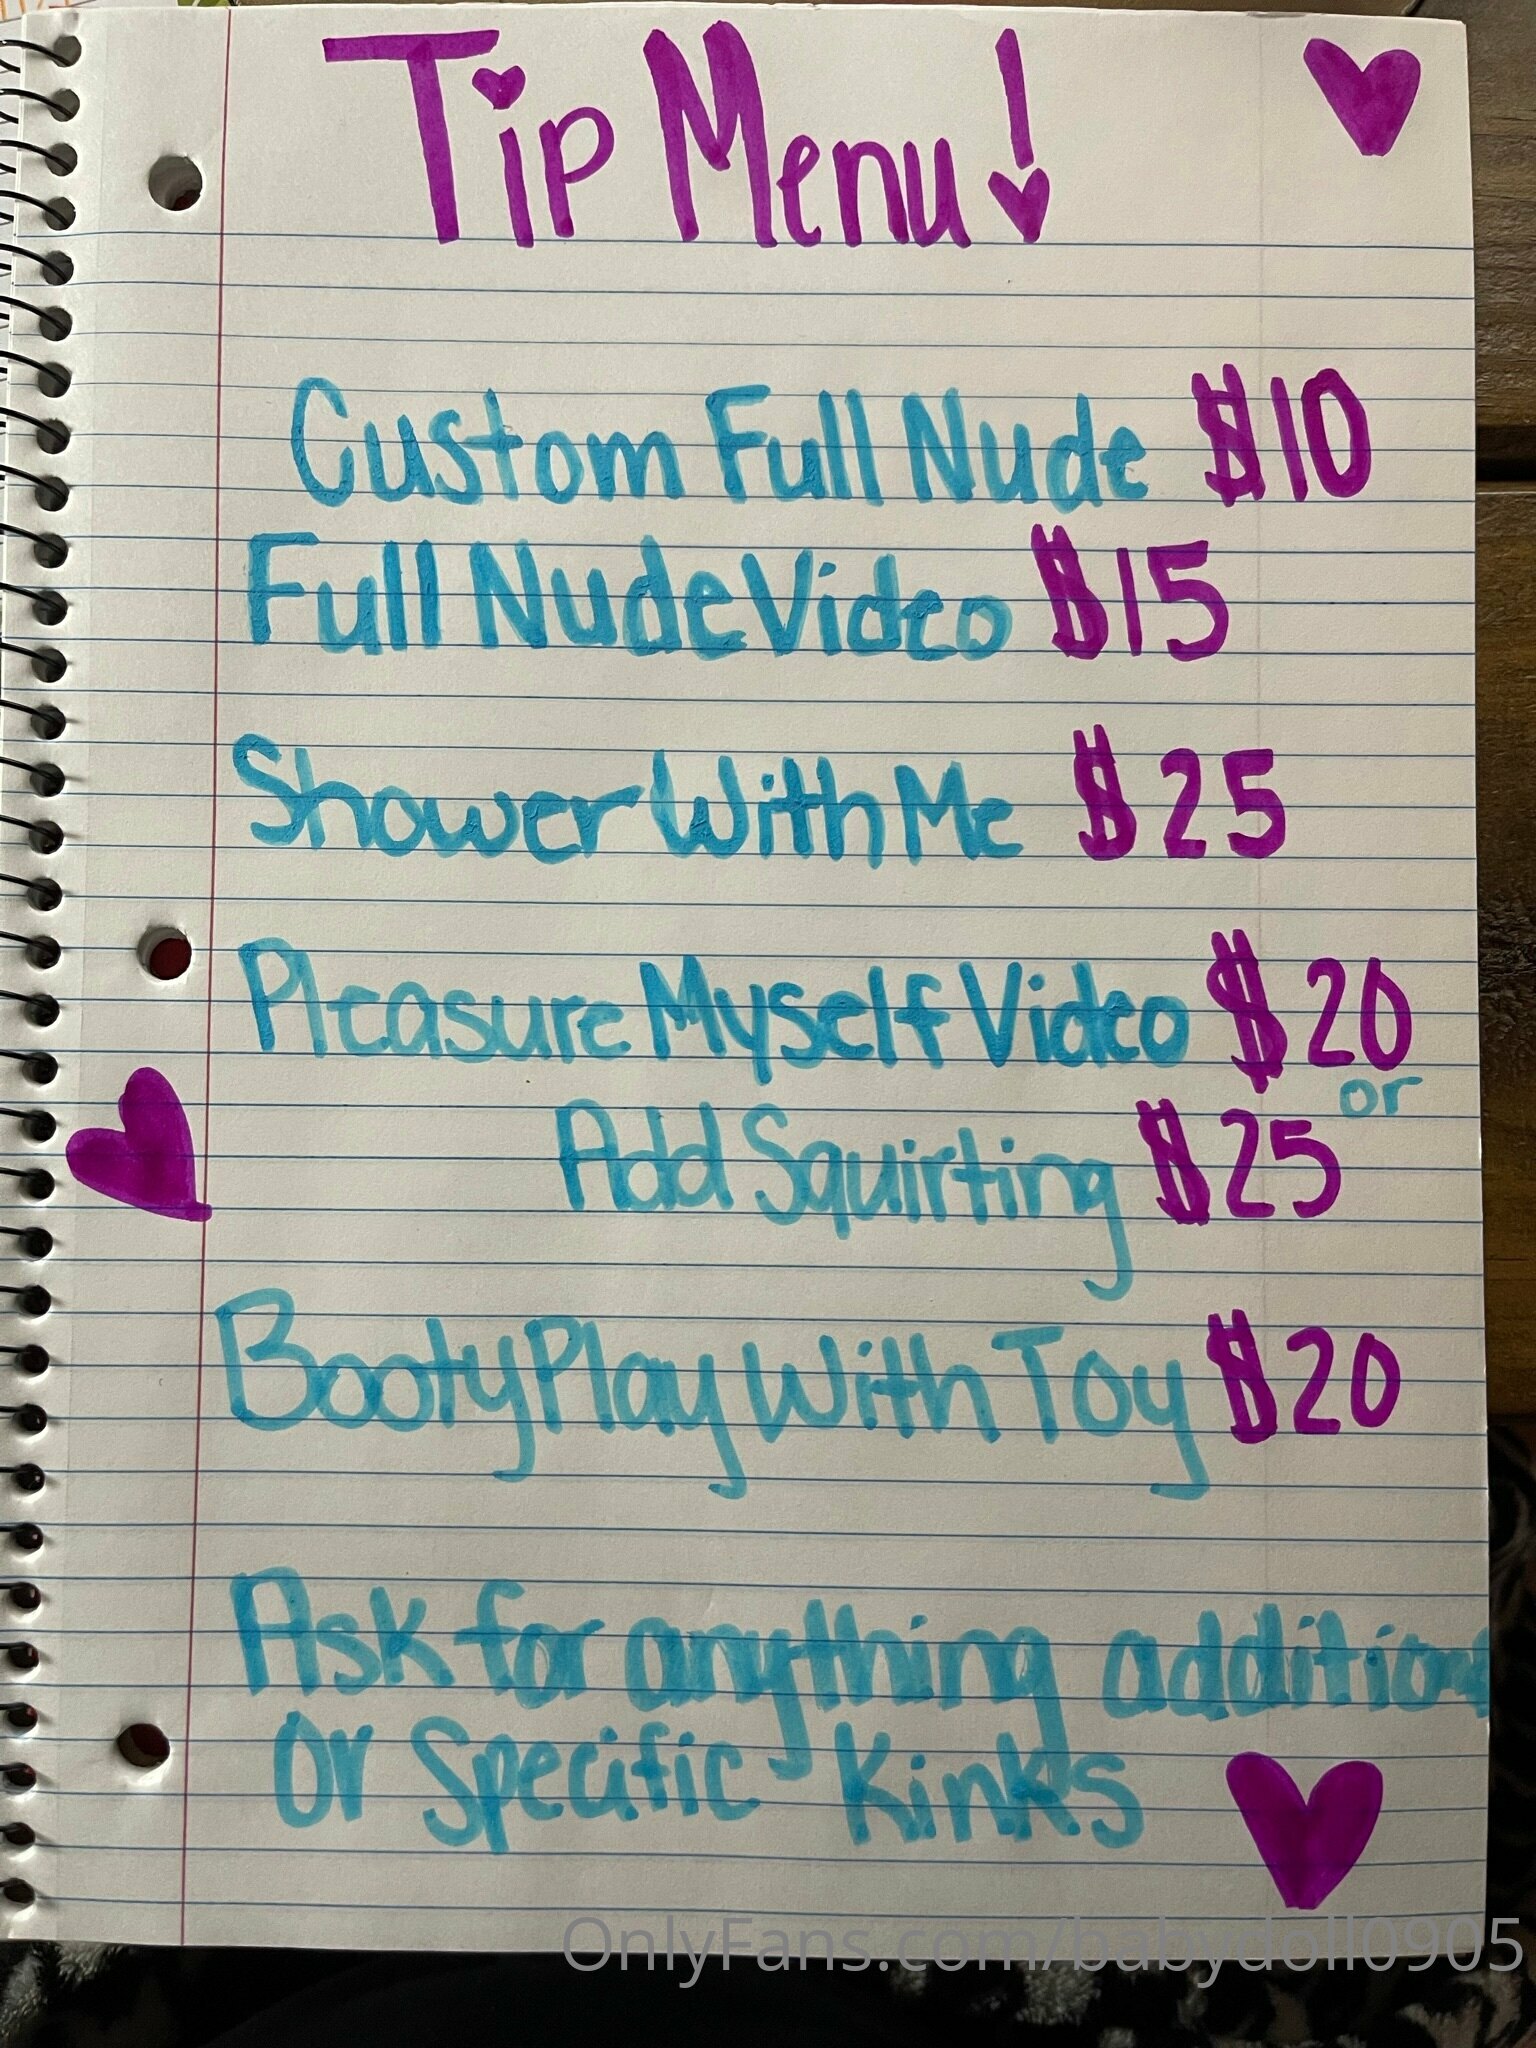 Tip Menu!
Custom Full Nude $10
Full Nude Video $15
Shower With Me $25
Pleasure Myself Video $20
or
Add Squirting $25
Booty Play With Toy $20
Ask for anything addition
Or Specific Kinks
OnlyFans.com/babydoll0905